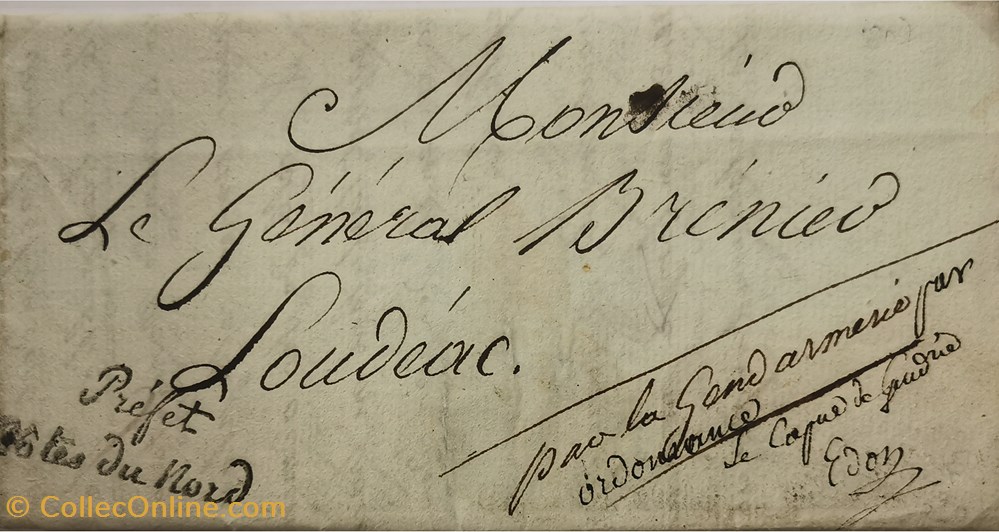 Monsieur
Le Général Brénier
Loudéac.
Préfet
Côtes du Nord
par la Gendarmerie par
ordonnance
Le Capne de Gendrie
Edon
© CollecOnline.com